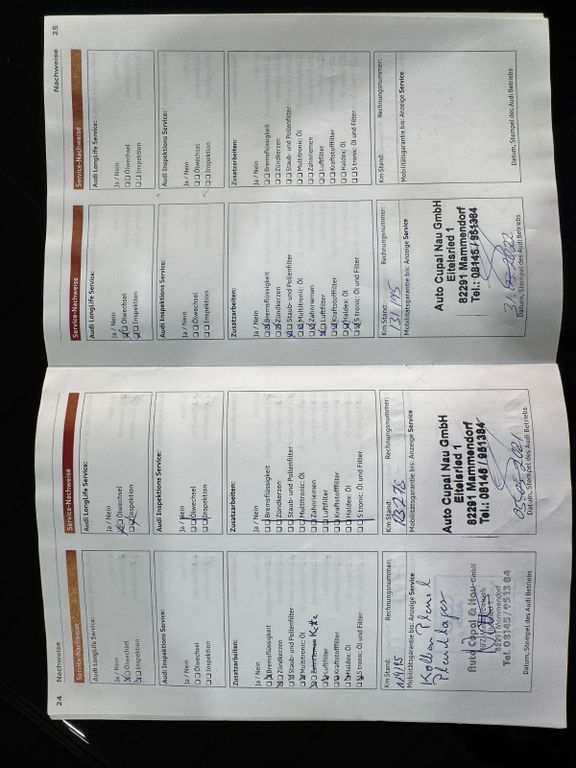 24
Nachweise
Service-Nachweise
Audi LongLife Service:
Ja / Nein
Ölwechsel
Inspektion
Audi Inspektions Service:
Ja / Nein
Ölwechsel
Inspektion
Zusatzarbeiten:
Ja / Nein
Bremsflüssigkeit
Zündkerzen
Staub- und Pollenfilter
Multitronic: Öl
Kete
Luftfilter
Kraftstofffilter
Haldex: Öl
S tronic: Öl und Filter
Km Stand:
Rechnungsnummer:
Mobilitätsgarantie bis: Anzeige Service
Kolben Pleuel
Pleuellager
Tel. 08145/951384
Datum, Stempel des Audi Betriebs
Service-Nachweise
Audi LongLife Service:
Ja / Nein
Ölwechsel
Inspektion
Audi Inspektions Service:
Ja / Nein
Ölwechsel
Inspektion
Zusatzarbeiten:
Ja / Nein
Bremsflüssigkeit
Zündkerzen
Staub- und Pollenfilter
Multitronic: Öl
Zahnriemen
Luftfilter
Kraftstofffilter
Haldex: Öl
S tronic: Öl und Filter
Km Stand:
Rechnungsnummer:
Mobilitätsgarantie bis: Anzeige Service
Auto Cupal Nau GmbH
Eitelsried 1
82291 Mammendorf
Tel.: 08145 / 951384
Datum, Stempel des Audi Betriebs
Nachweise
25
Service-Nachweise
Audi LongLife Service:
Ja / Nein
Ölwechsel
Inspektion
Audi Inspektions Service:
Ja / Nein
Ölwechsel
Inspektion
Zusatzarbeiten:
Ja / Nein
Bremsflüssigkeit
Zündkerzen
Staub- und Pollenfilter
Multitronic: Öl
Zahnriemen
Luftfilter
Kraftstofffilter
Haldex: Öl
S tronic: Öl und Filter
Km Stand:
Rechnungsnummer:
131195
Mobilitätsgarantie bis: Anzeige Service
Auto Cupal Nau GmbH
Eitelsried 1
82291 Mammendorf
Tel.: 08145 / 951384
Datum, Stempel des Audi Betriebs
Service-Nachweise
Audi LongLife Service:
Ja / Nein
Ölwechsel
Inspektion
Audi Inspektions Service:
Ja / Nein
Ölwechsel
Inspektion
Zusatzarbeiten:
Ja / Nein
Bremsflüssigkeit
Zündkerzen
Staub- und Pollenfilter
Multitronic: Öl
Zahnriemen
Luftfilter
Kraftstofffilter
Haldex: Öl
S tronic: Öl und Filter
Km Stand:
Rechnungsnummer:
Mobilitätsgarantie bis: Anzeige Service
Datum, Stempel des Audi Betriebs